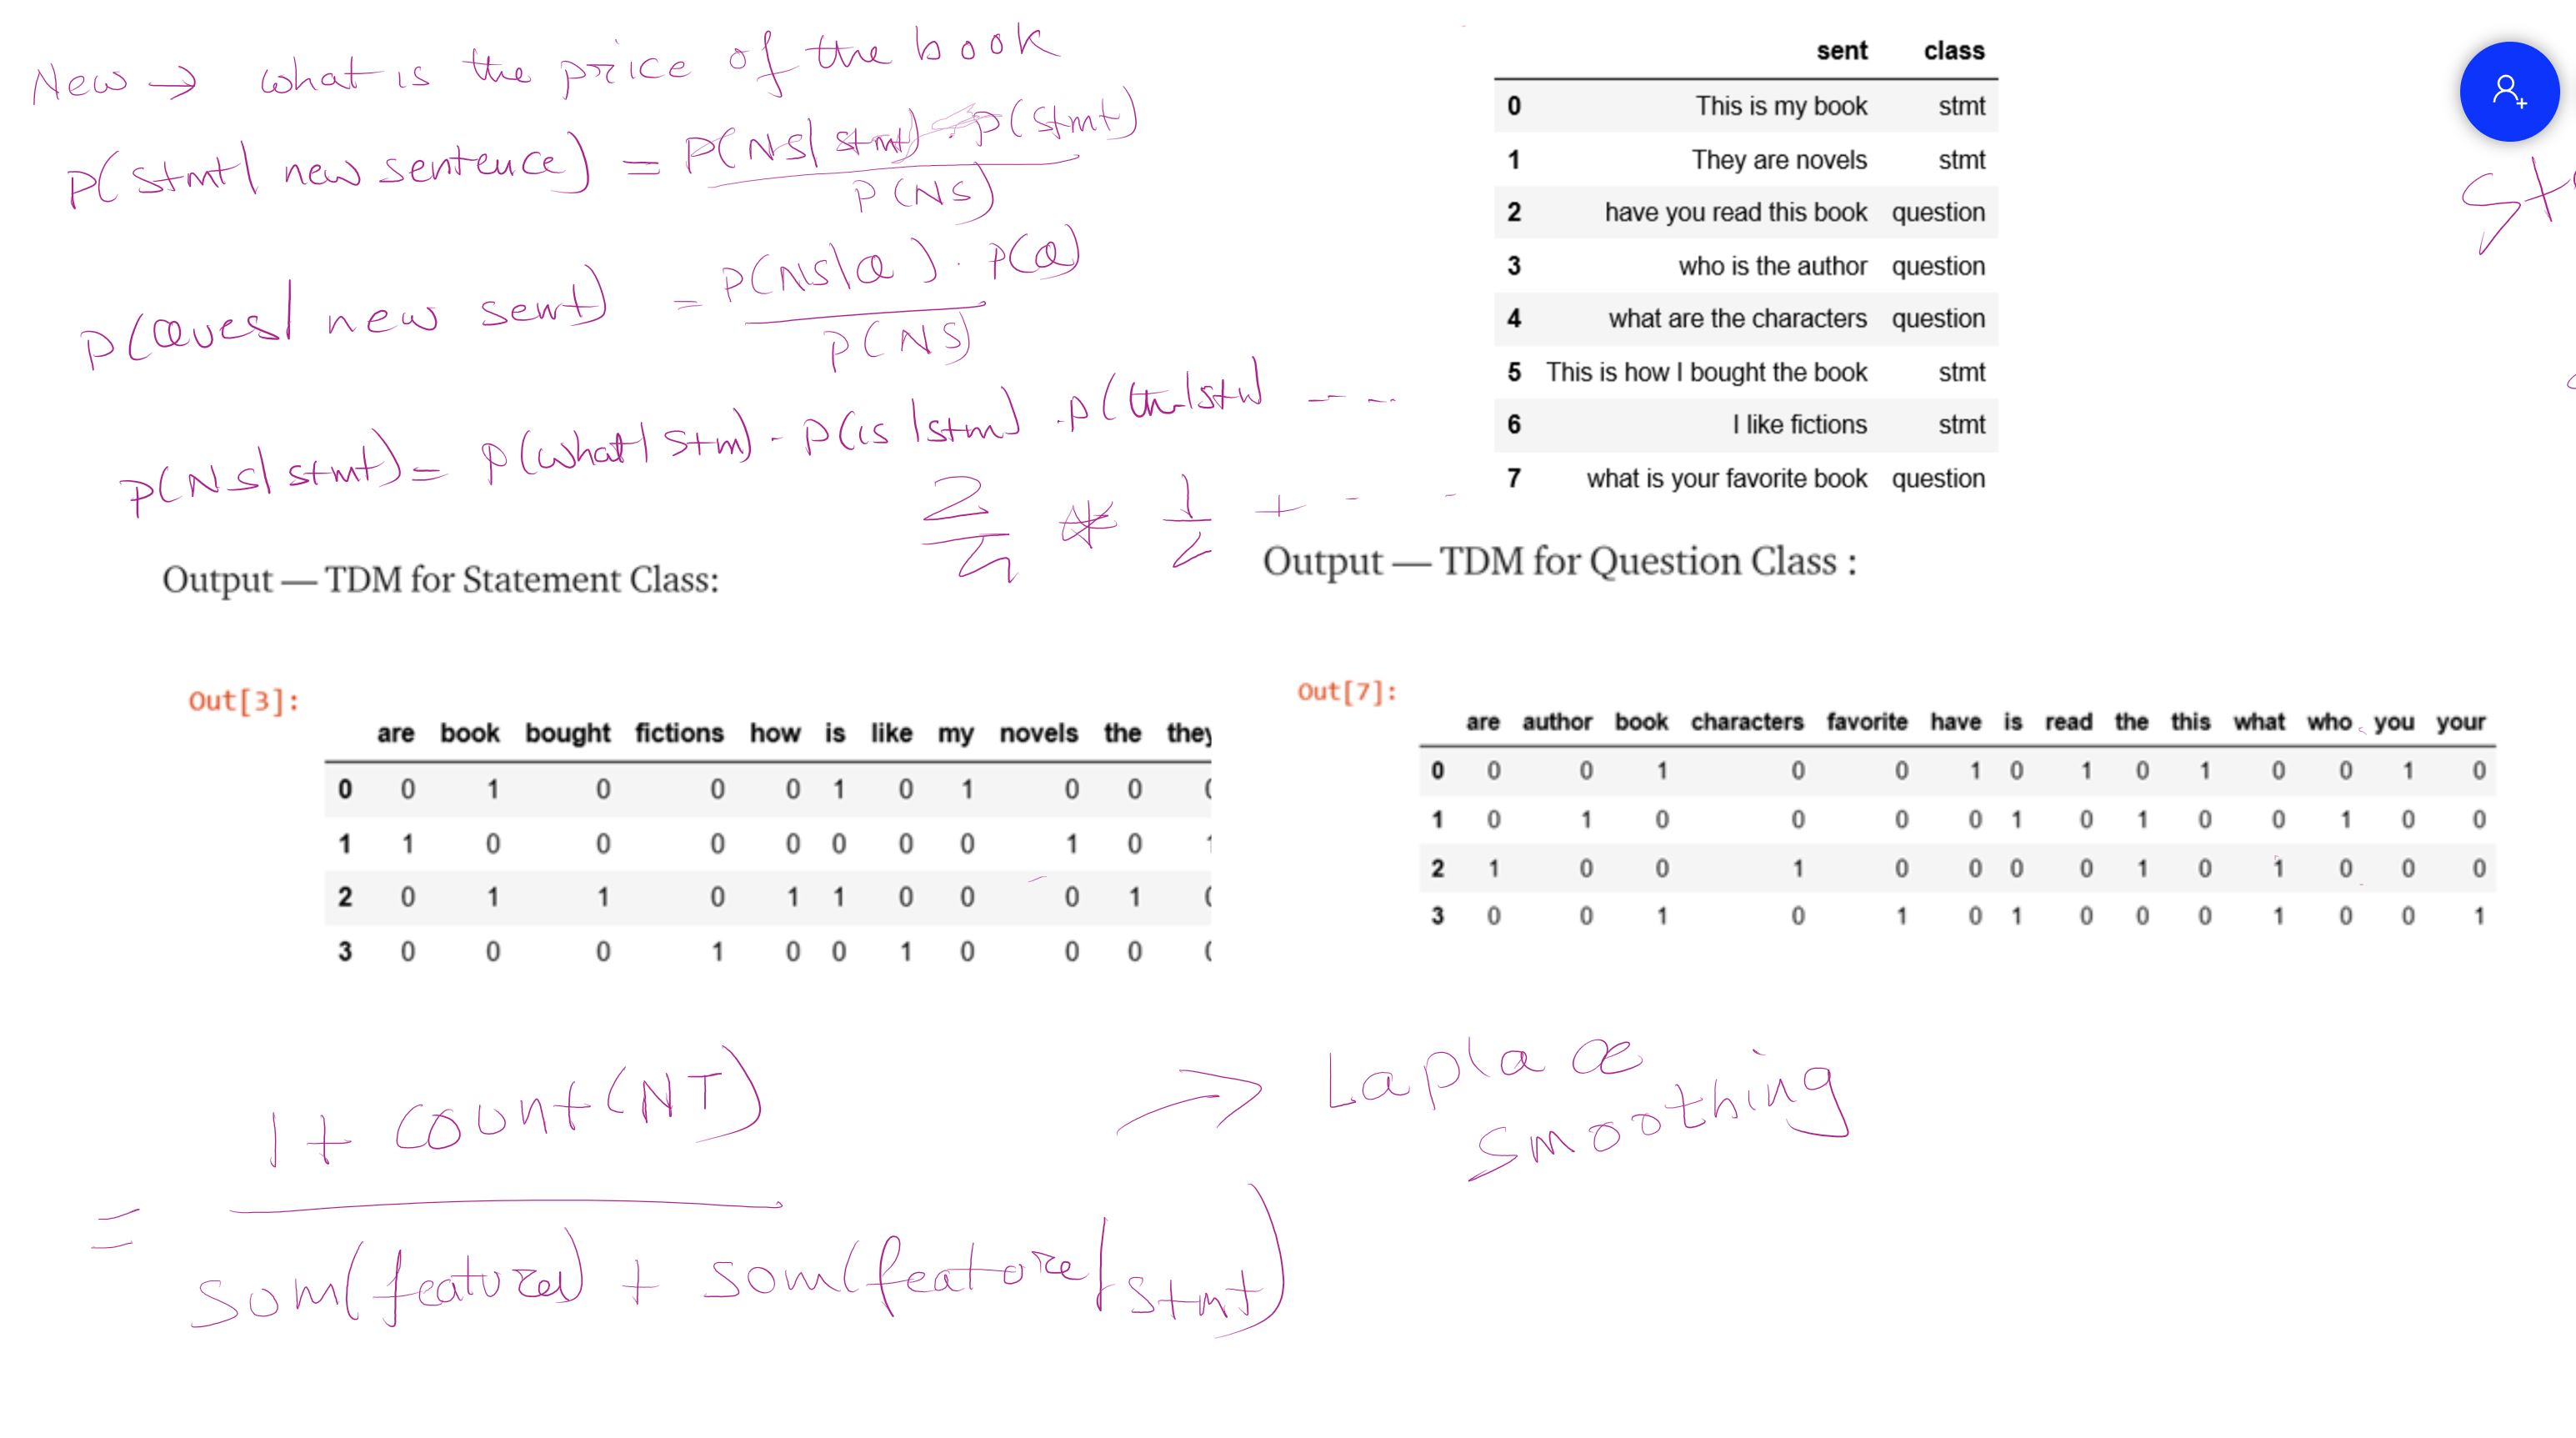 New → what is the price of the book
P(stmt| new sentence) = P(NS| stmt) . P(stmt)
P(NS)
P(Ques| new sent) = P(NS|Q) . P(Q)
P(NS)
P(NS| stmt) = P(what| stm) . P(is |stm) . P(the|stm) -- --
2/4 * 1/2 + - -
sent class
0 This is my book stmt
1 They are novels stmt
2 have you read this book question
3 who is the author question
4 what are the characters question
5 This is how I bought the book stmt
6 I like fictions stmt
7 what is your favorite book question
Output — TDM for Statement Class:
Out[3]:
are book bought fictions how is like my novels the they
0 0 1 0 0 0 1 0 1 0 0
1 1 0 0 0 0 0 0 0 1 0
2 0 1 1 0 1 1 0 0 0 1
3 0 0 0 1 0 0 1 0 0 0
Output — TDM for Question Class :
Out[7]:
are author book characters favorite have is read the this what who you your
0 0 0 1 0 0 1 0 1 0 1 0 0 1 0
1 0 1 0 0 0 0 1 0 1 0 0 1 0 0
2 1 0 0 1 0 0 0 0 1 0 1 0 0 0
3 0 0 1 0 1 0 1 0 0 0 1 0 0 1
= 1 + count(NT)
sum(feature) + sum(feature/stmt)
→ Laplace
smoothing